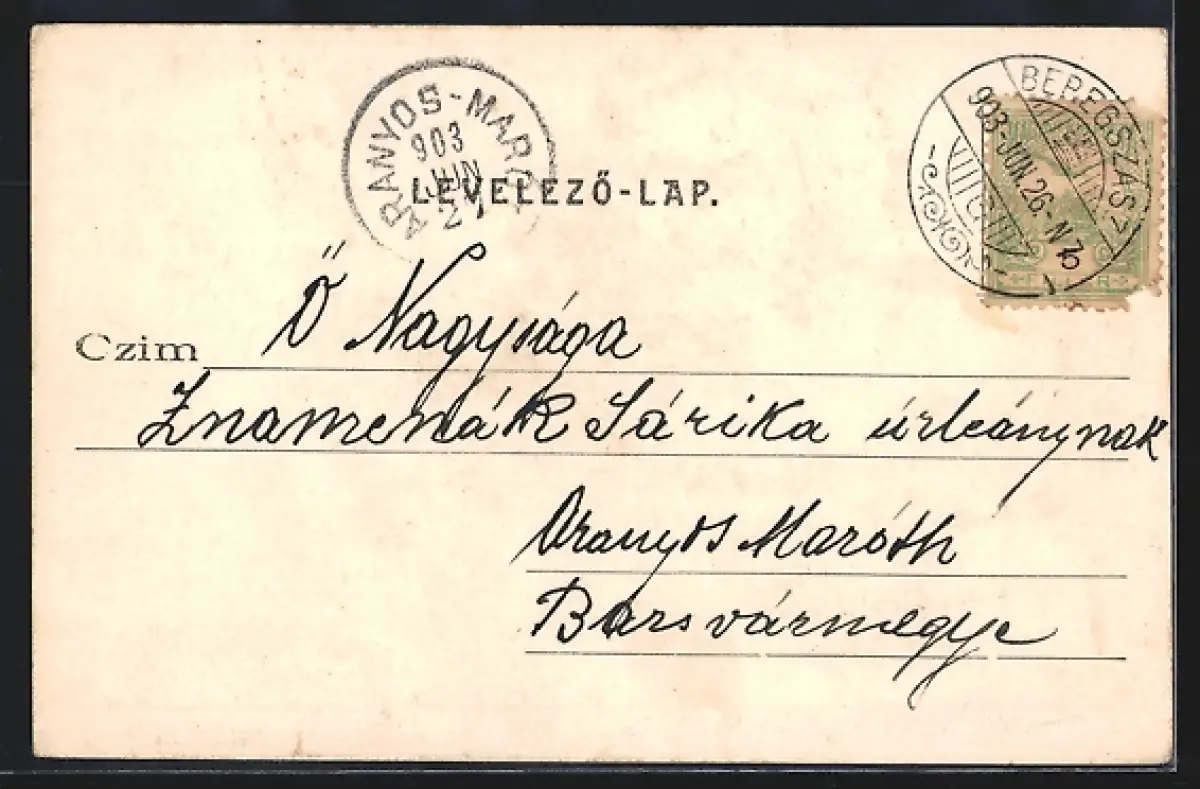 ARANYOS-MARÓT
903
JUN
BEREGSZÁSZ
903-JUN.26.-N
LEVELEZŐ-LAP.
Czim Ő Nagysága
Znamenák Sárika úrleánynak
Aranyos Maróth
Barsvármegye